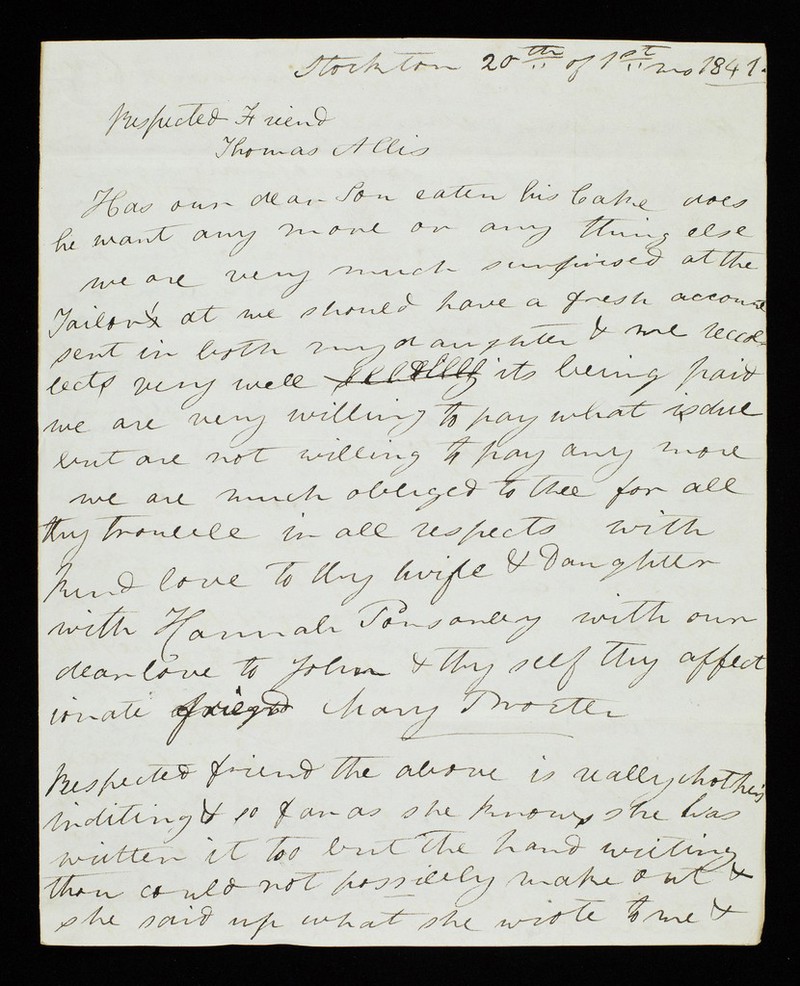 Stockton 20th of 1st mo 1841.
Respected Friend
Thomas Allis
Has our dear Son eaten his Cake does
he want any more or any thing else
we are very much surprised at the
Tailor's at we should have a fresh account
sent in both my daughter & me recol
lects very well its being paid
we are very willing to pay what is due
but are not willing to pay any more
we are much obliged to thee for all
thy trouble in all respects with
kind love to thy wife & Daughter
with Hannah Ponsonby with our
dear love to John & thy self thy affect
ionate friend Mary Procter
Respected friend the above is really Mothers
inditing & so far as she knows she has
written it too but the hand writing
thou could not possibly make out &
she said up what she wrote to me &